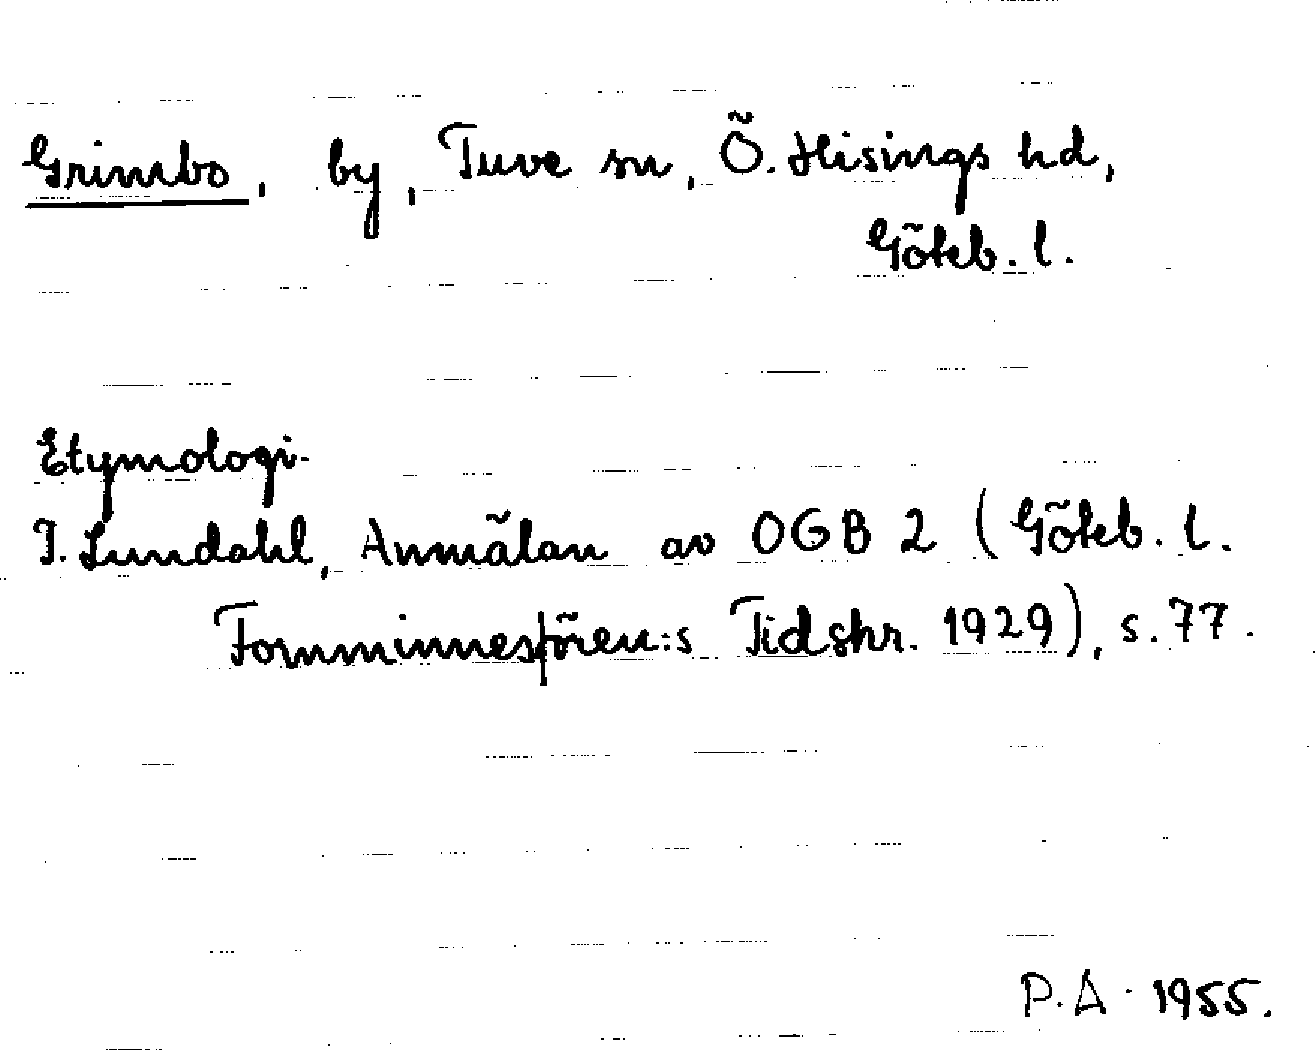 Grimbo, by, Tuve sn, Ö. Hisings hd,
Göteb. l.
Etymologi.
I. Lundahl, Anmälan av OGB 2 (Göteb. l.
Fornminnesfören:s Tidskr. 1929), s. 77.
P.A. 1955.